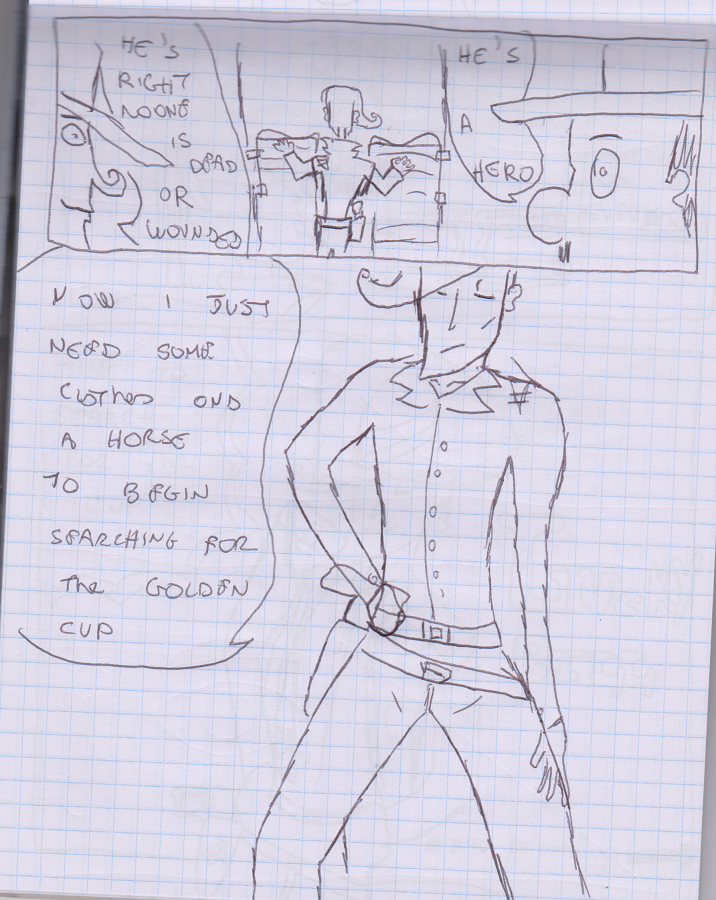 HE'S
RIGHT
NOONE
IS
DEAD
OR
WOUNDED
HE'S
A
HERO
NOW I JUST
NEED SOME
CLOTHES OND
A HORSE
TO BEGIN
SEARCHING FOR
The GOLDEN
CUP